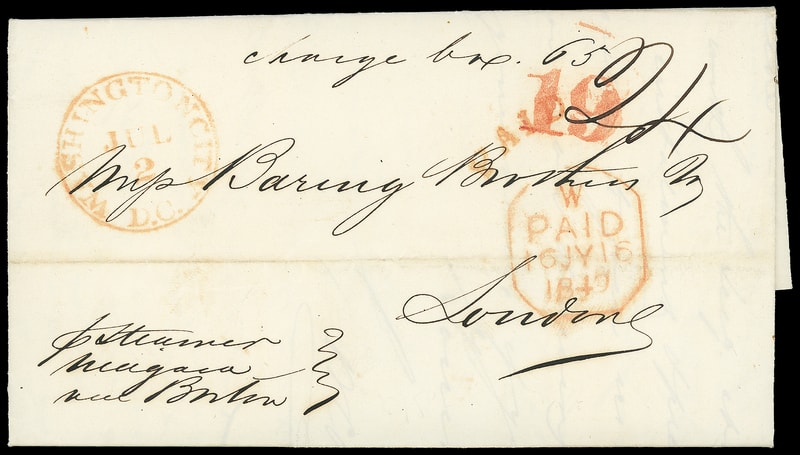 charge box. 65
24
19
PAID
WASHINGTON CITY
JUL
2
D.C.
Messrs Baring Brothers &
W
PAID
16JY16
1849
London
p steamer
Niagara
via Boston